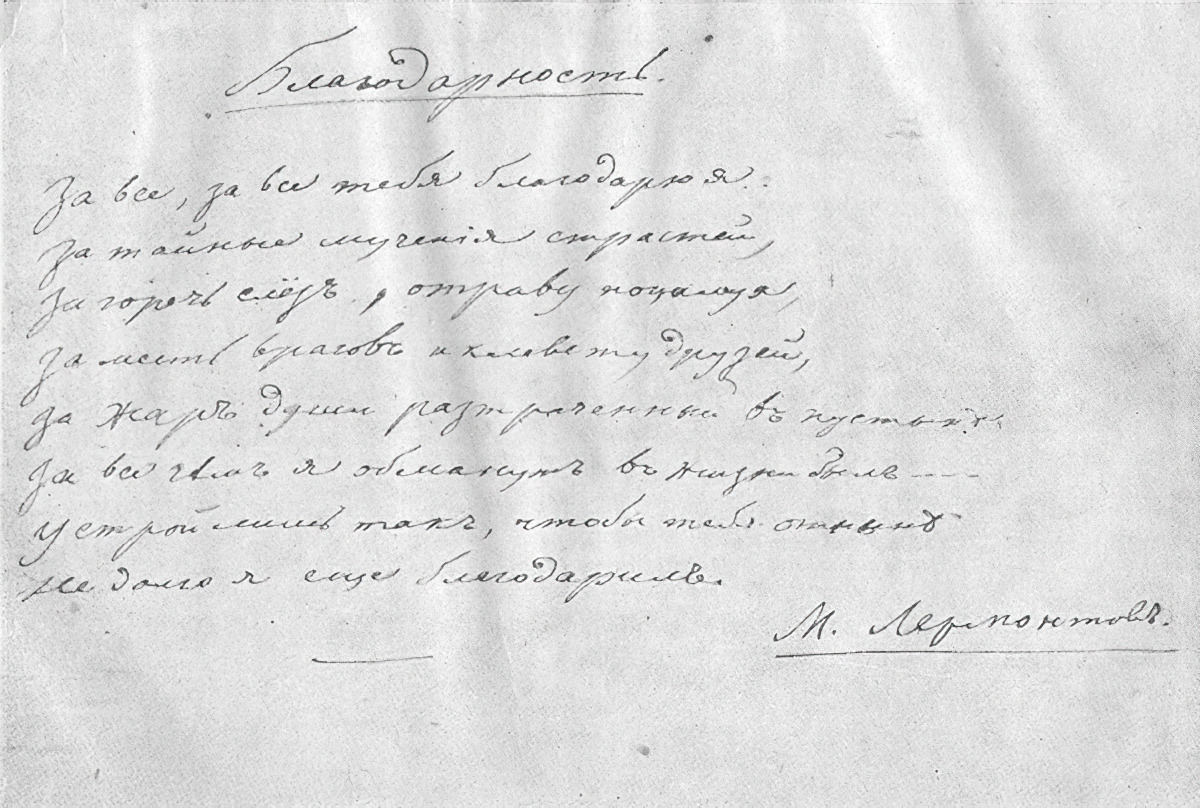 Благодарность.
За все, за все тебя благодарю я:
За тайные мученія страстей,
За горечь слёзъ, отраву поцалуя,
За месть враговъ и клевету друзей;
За жаръ души растраченный въ пустынѣ,
За все чѣмъ я обманутъ въ жизни былъ —
Устрой лишь такъ, чтобы тебя отнынѣ
Не долго я еще благодарилъ.
М. Лермонтовъ.